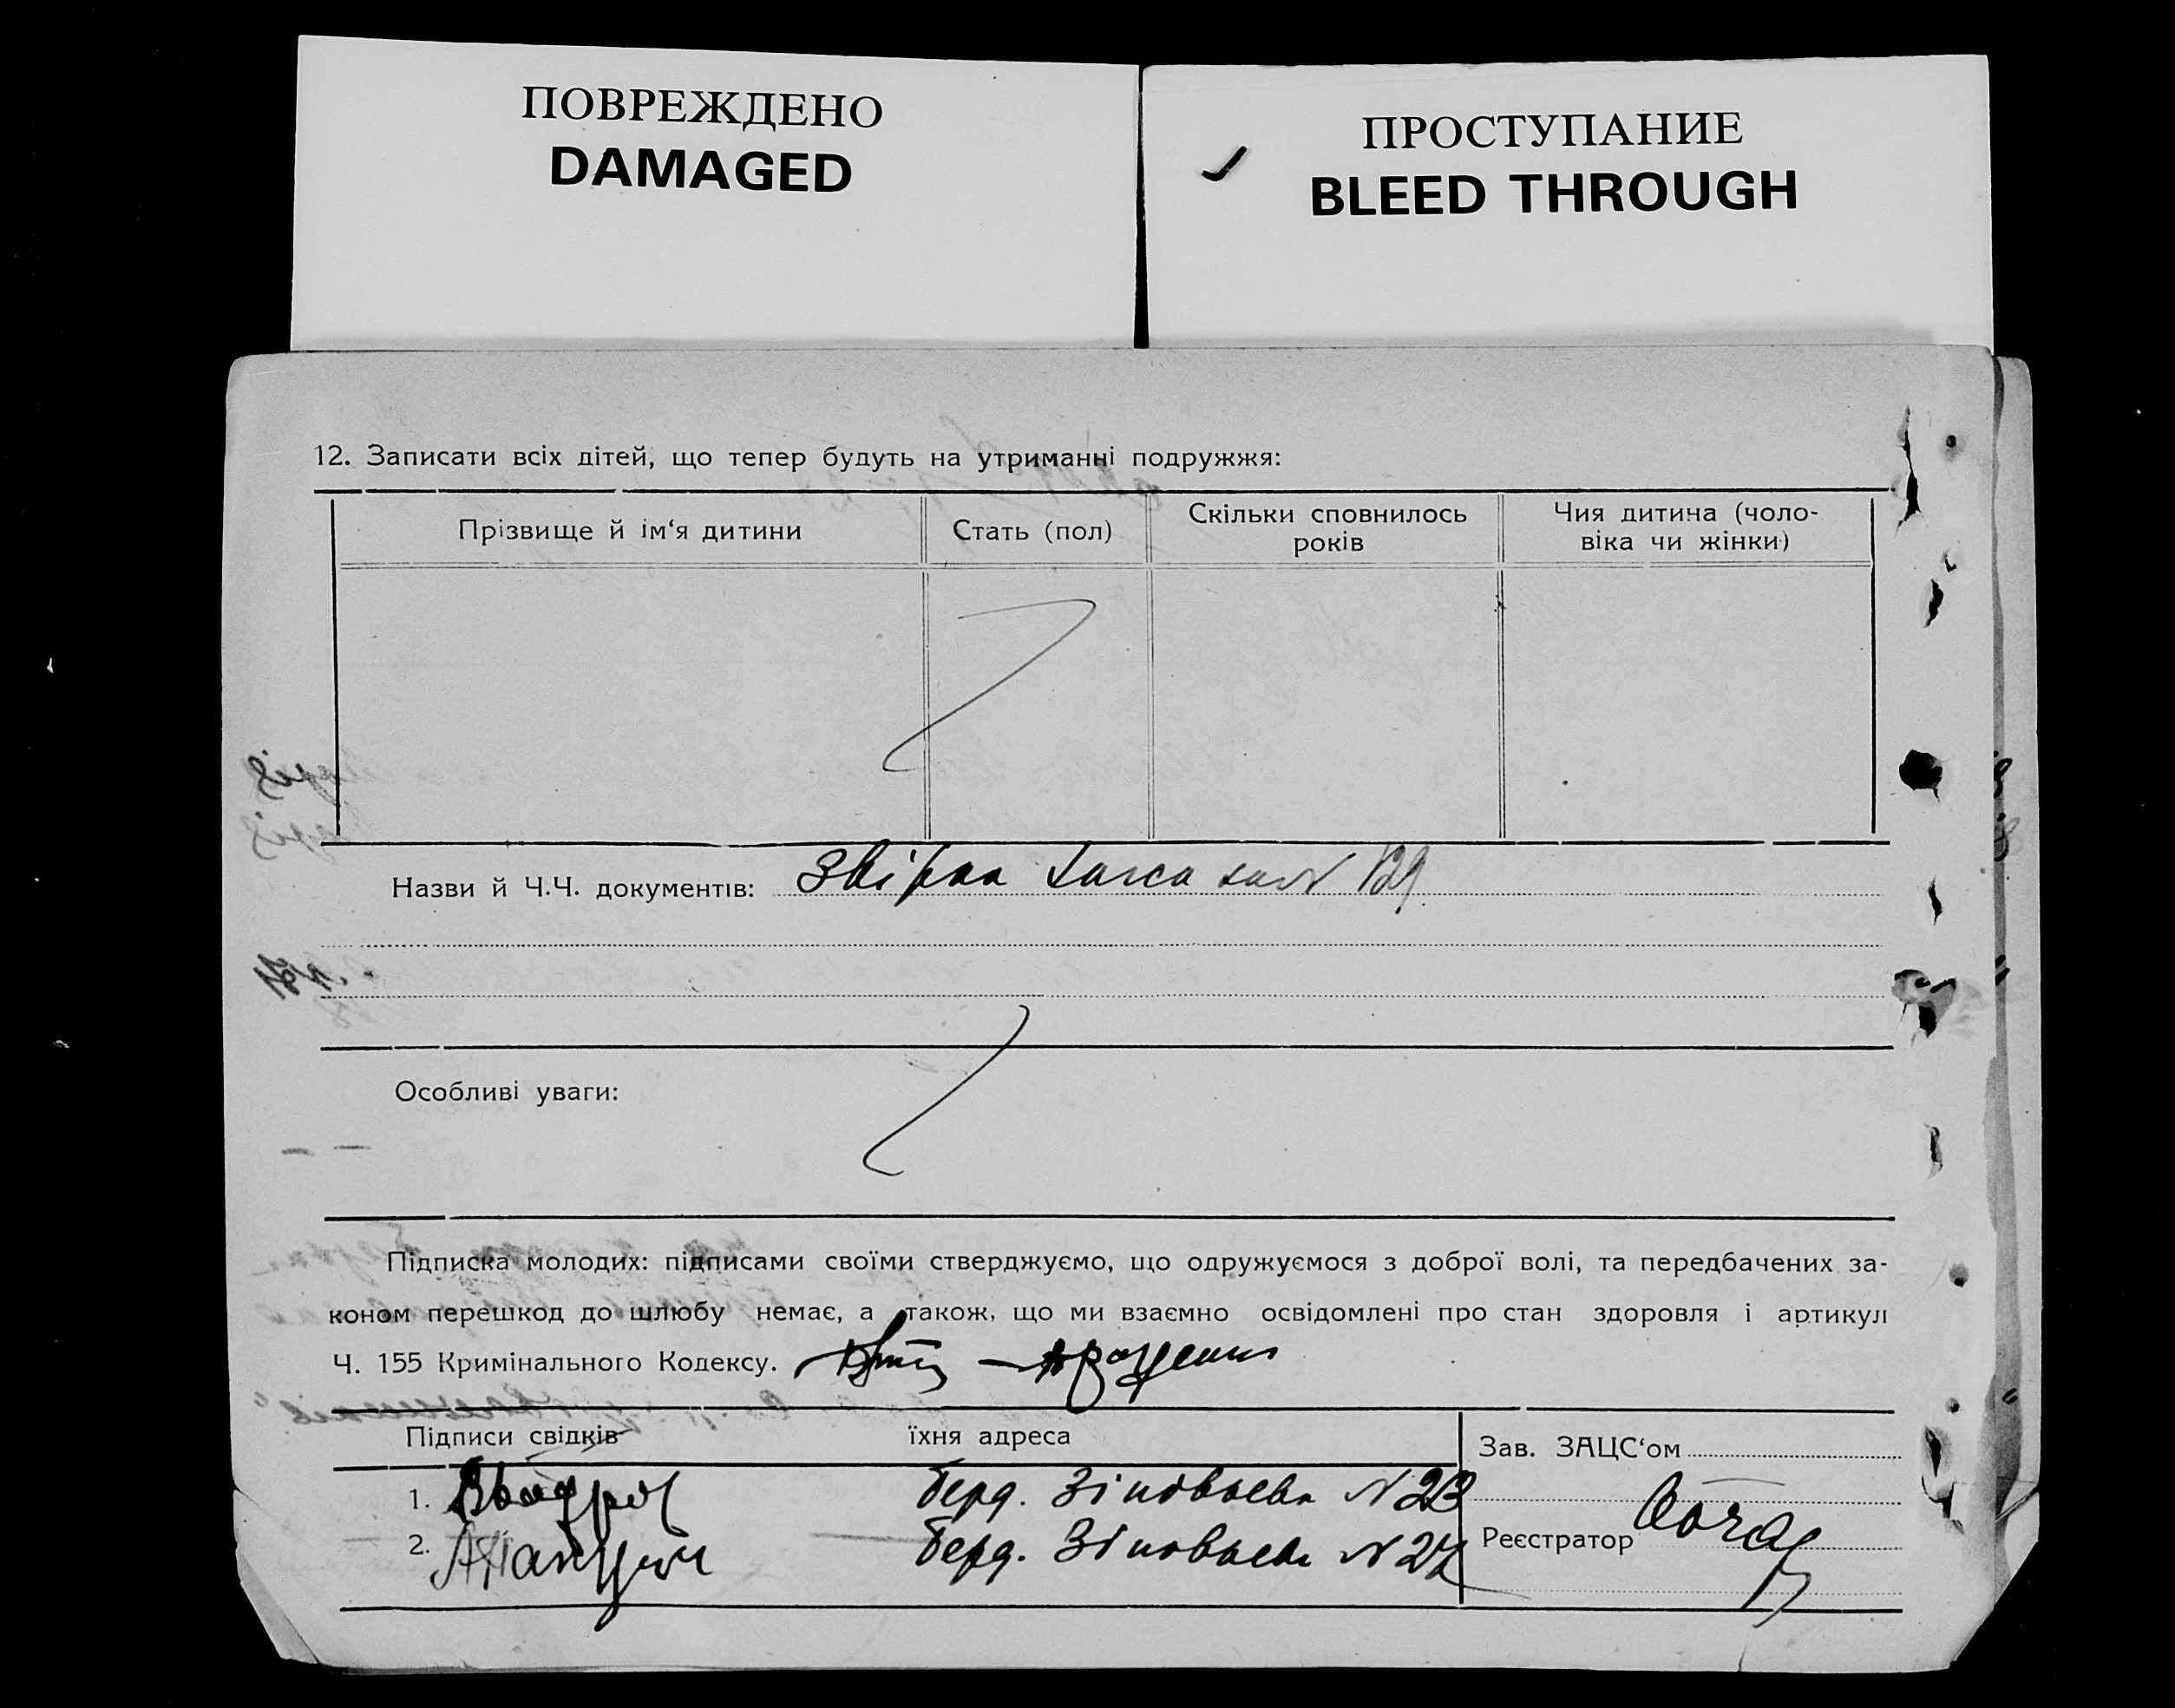 ПОВРЕЖДЕНО
DAMAGED
ПРОСТУПАНИЕ
BLEED THROUGH
12. Записати всіх дітей, що тепер будуть на утриманні подружжя:
Прізвище й ім‘я дитини
Стать (пол)
Скільки сповнилось
років
Чия дитина (чоло-
віка чи жінки)
Назви й Ч.Ч. документів:
Особливі уваги:
Підписка молодих: підписами своїми стверджуємо, що одружуємося з доброї волі, та передбачених за-
коном перешкод до шлюбу немає, а також, що ми взаємно освідомлені про стан здоровля і артикул
Ч. 155 Кримінального Кодексу.
Підписи свідків
їхня адреса
Зав. ЗАЦС‘ом
1. Берд. Зіновьева N
2. Берд. Зіновьева N
Реєстратор